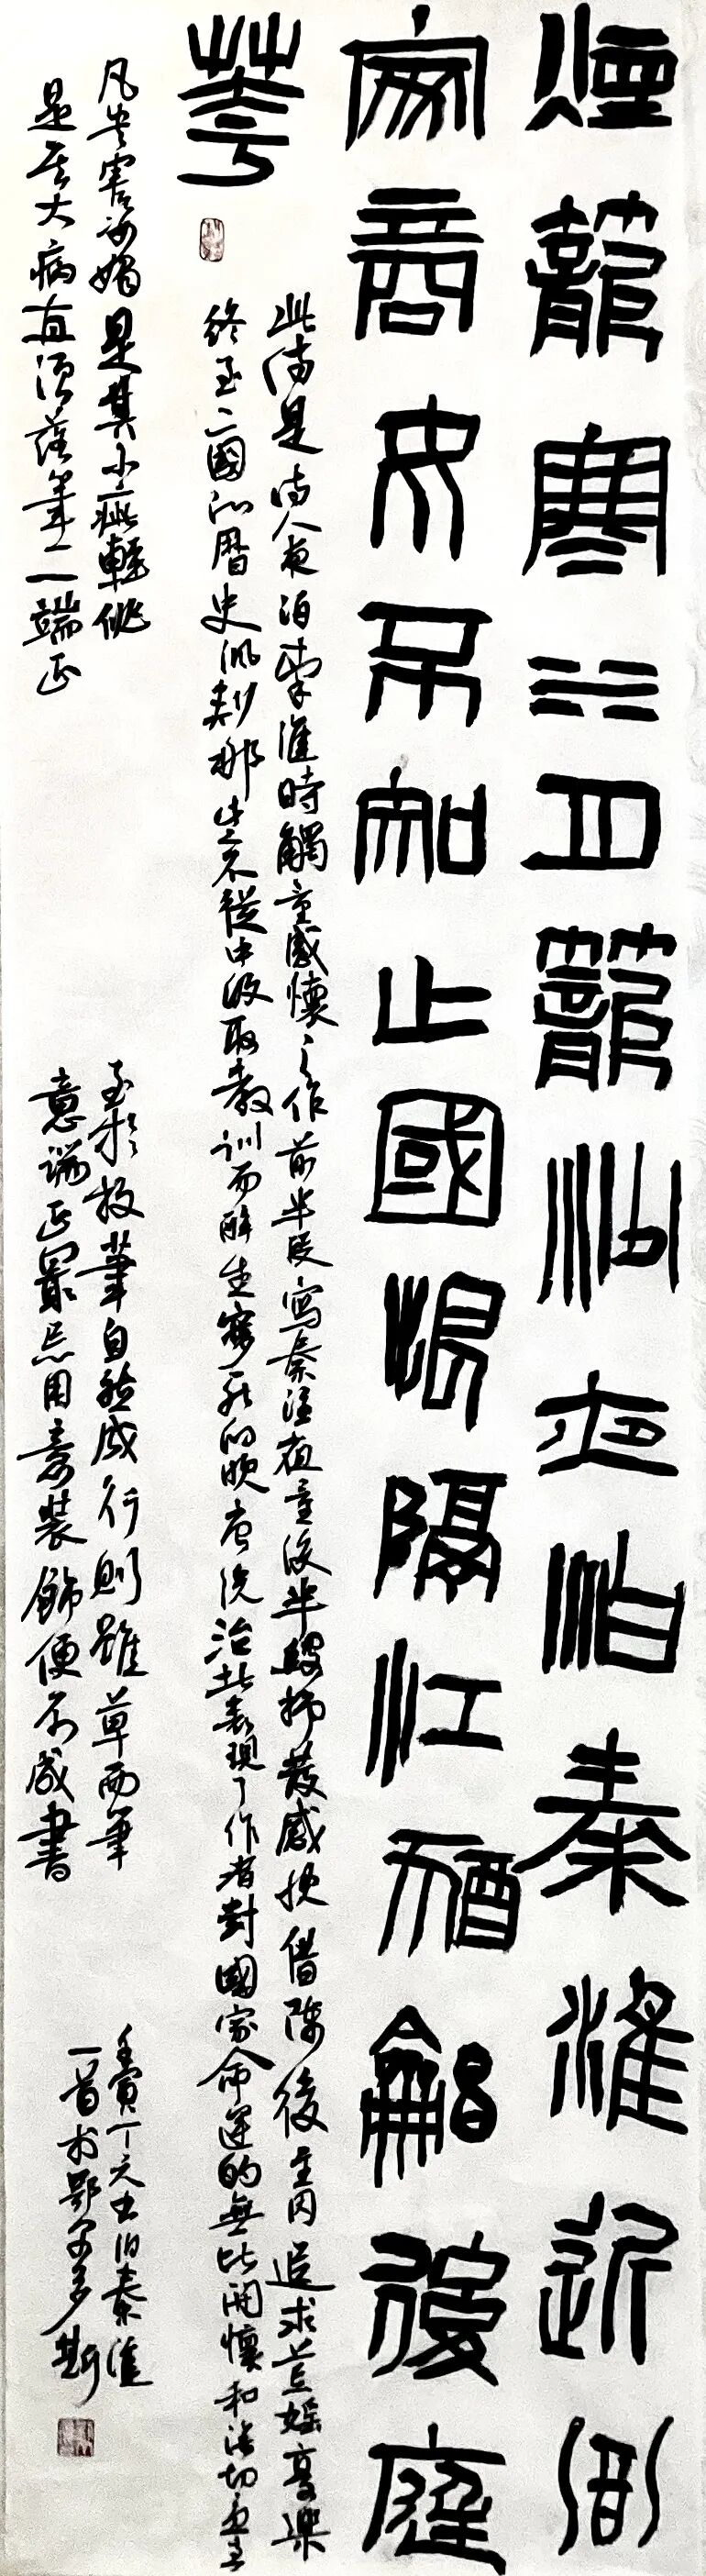 烟籠寒水月籠沙夜泊秦淮近酒
家商女不知亡國恨隔江猶唱後庭
花
此詩是詩人夜泊秦淮時觸景感懷之作前半段寫秦淮夜景後半段抒發感慨借陳後主因追求荒婬享樂
終至亡國的歷史諷刺那些不從中汲取教訓而醉生夢死的晚唐統治者表現了作者對國家命運的無比關懷和深切憂
凡安害妍媚是其小疵輕佻
是其大病直須落筆一一端正
至於放筆自然成行則雖草而筆
意端正最忌用意裝飾便不成書
泊秦淮
一首於鄂尔多斯